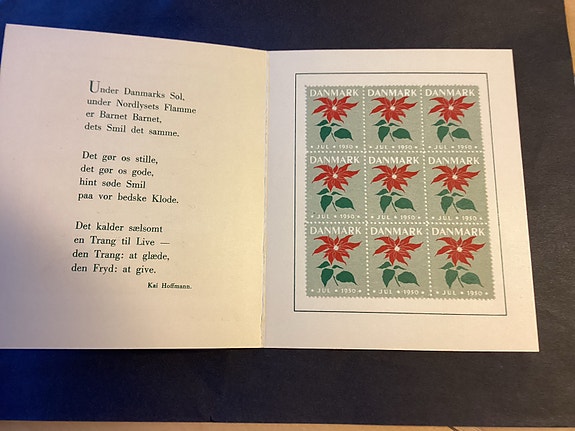 Under Danmarks Sol,
under Nordlysets Flamme
er Barnet Barnet,
dets Smil det samme.
Det gør os stille,
det gør os gode,
hint søde Smil
paa vor bedske Klode.
Det kalder sælsomt
en Trang til Live —
den Trang: at glæde,
den Fryd: at give.
Kai Hoffmann.
DANMARK DANMARK DANMARK
JUL • 1950 JUL • 1950 JUL • 1950
DANMARK DANMARK DANMARK
JUL • 1950 JUL • 1950 JUL • 1950
DANMARK DANMARK DANMARK
JUL • 1950 JUL • 1950 JUL • 1950